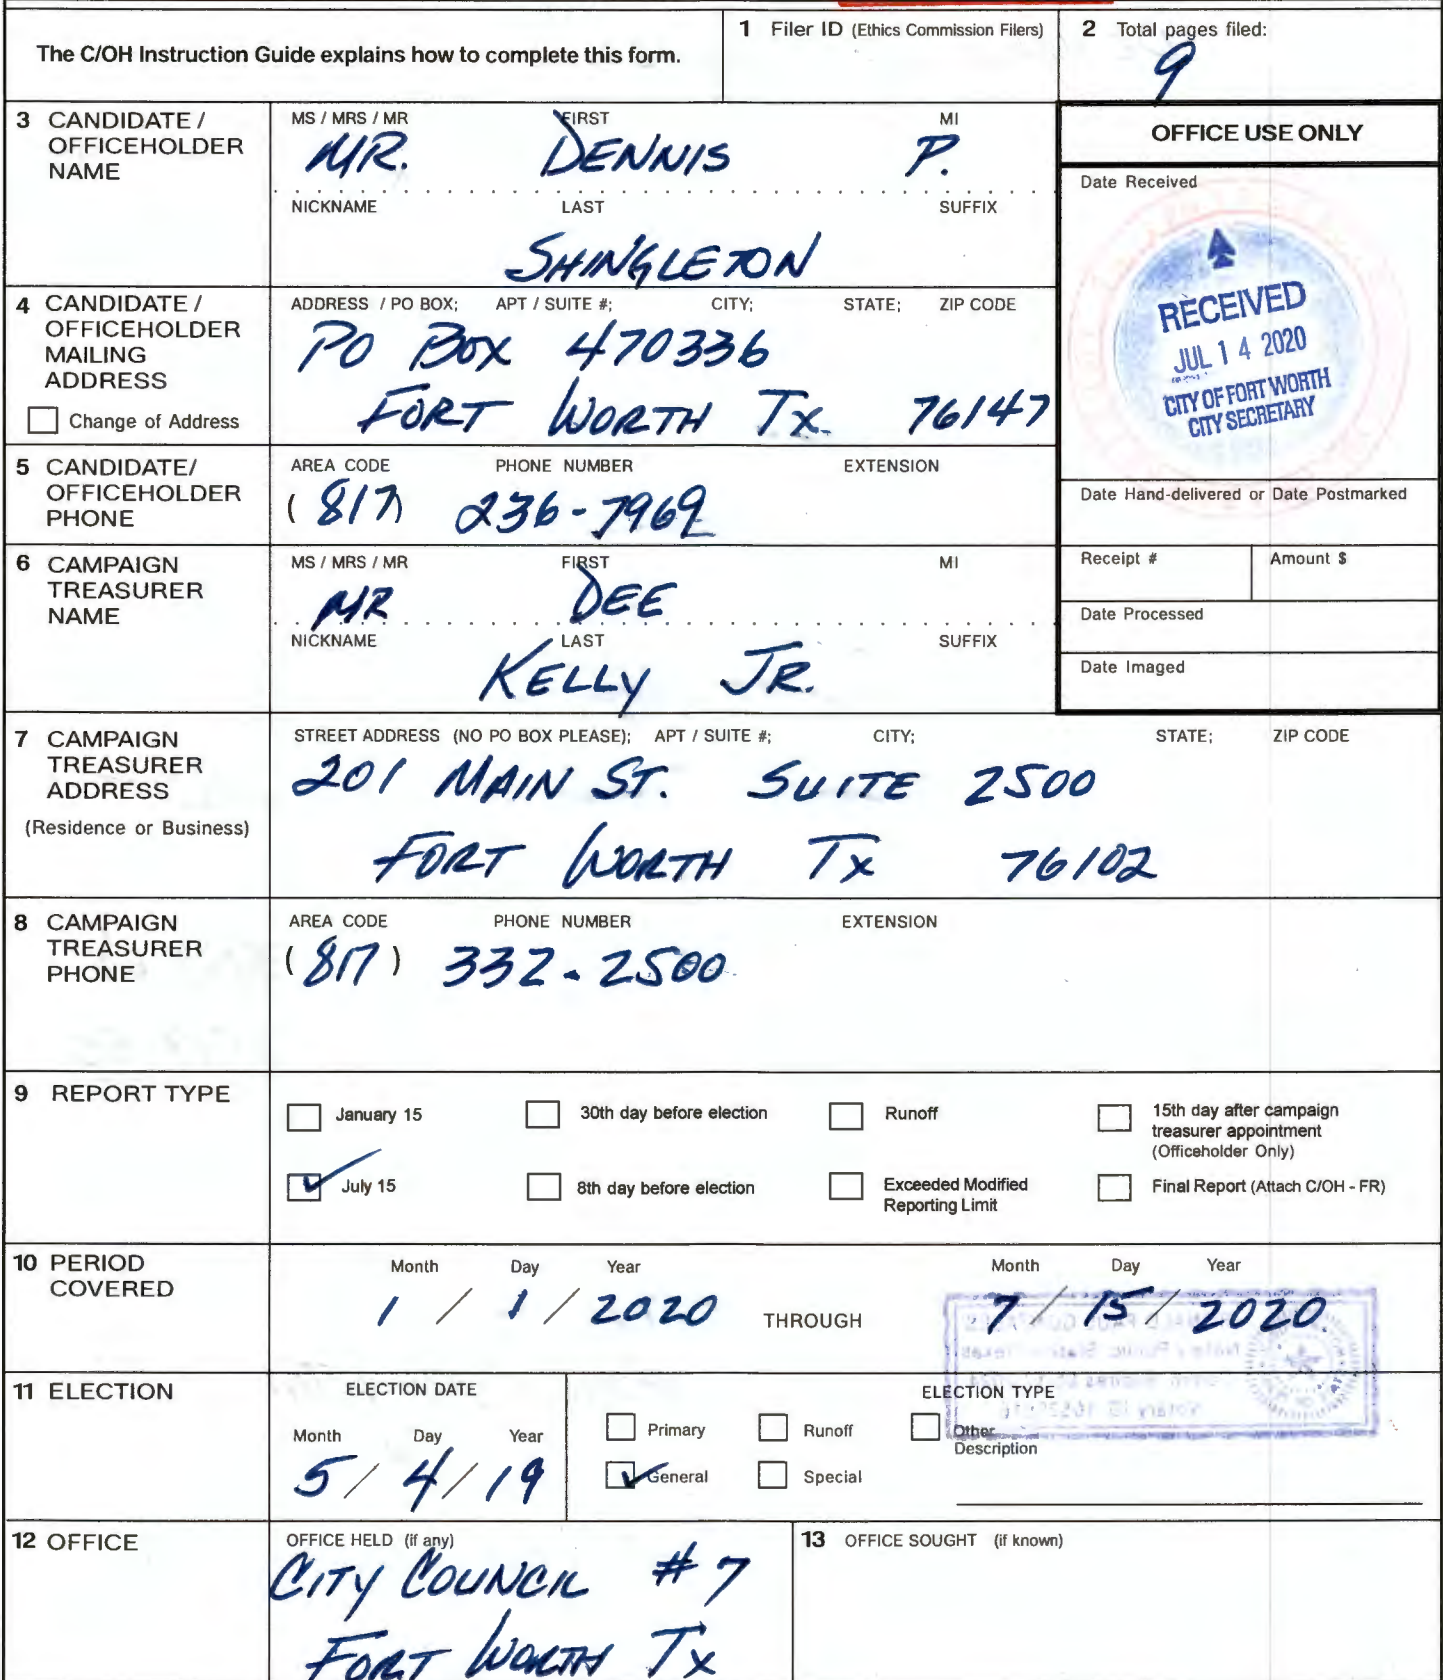 The C/OH Instruction Guide explains how to complete this form.
1 Filer ID (Ethics Commission Filers)
2 Total pages filed:
9
3 CANDIDATE / OFFICEHOLDER NAME
MS / MRS / MR FIRST MI
MR. DENNIS P.
NICKNAME LAST SUFFIX
SHINGLETON
OFFICE USE ONLY
Date Received
RECEIVED
JUL 14 2020
CITY OF FORT WORTH
CITY SECRETARY
4 CANDIDATE / OFFICEHOLDER MAILING ADDRESS
Change of Address
ADDRESS / PO BOX; APT / SUITE #; CITY; STATE; ZIP CODE
PO BOX 470336
FORT WORTH TX. 76147
5 CANDIDATE/ OFFICEHOLDER PHONE
AREA CODE PHONE NUMBER EXTENSION
(817) 236-7969
Date Hand-delivered or Date Postmarked
6 CAMPAIGN TREASURER NAME
MS / MRS / MR FIRST MI
MR DEE
NICKNAME LAST SUFFIX
KELLY JR.
Receipt # Amount $
Date Processed
Date Imaged
7 CAMPAIGN TREASURER ADDRESS
(Residence or Business)
STREET ADDRESS (NO PO BOX PLEASE); APT / SUITE #; CITY; STATE; ZIP CODE
201 MAIN ST. SUITE 2500
FORT WORTH TX 76102
8 CAMPAIGN TREASURER PHONE
AREA CODE PHONE NUMBER EXTENSION
(817) 332-2500
9 REPORT TYPE
January 15 30th day before election Runoff 15th day after campaign treasurer appointment (Officeholder Only)
July 15 8th day before election Exceeded Modified Reporting Limit Final Report (Attach C/OH - FR)
10 PERIOD COVERED
Month Day Year Month Day Year
1 / 1 / 2020 THROUGH 7 / 15 / 2020
11 ELECTION
ELECTION DATE
Month Day Year
5 / 4 / 19
ELECTION TYPE
Primary Runoff Other Description
General Special
12 OFFICE
OFFICE HELD (if any)
CITY COUNCIL #7
FORT WORTH TX
13 OFFICE SOUGHT (if known)